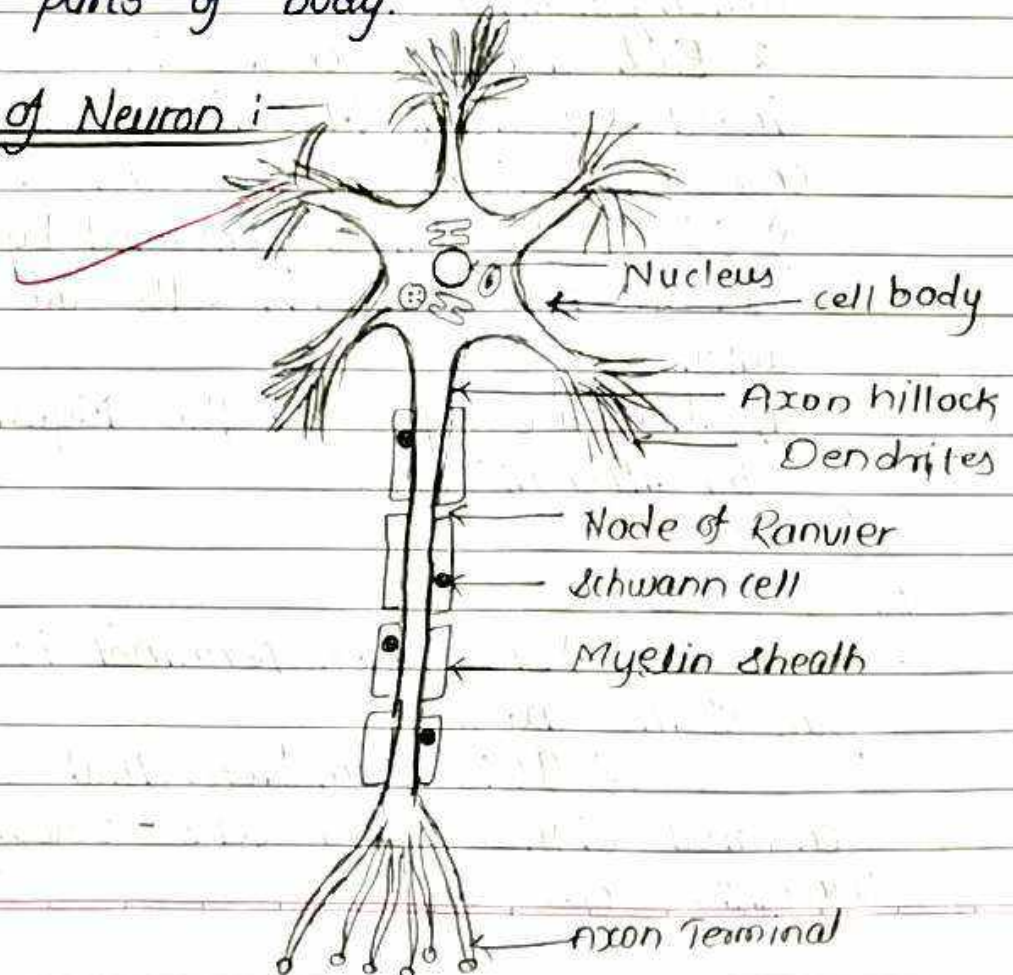 parts of body.
of Neuron :-
Nucleus
cell body
Axon hillock
Dendrites
Node of Ranvier
Schwann cell
Myelin sheath
Axon Terminal